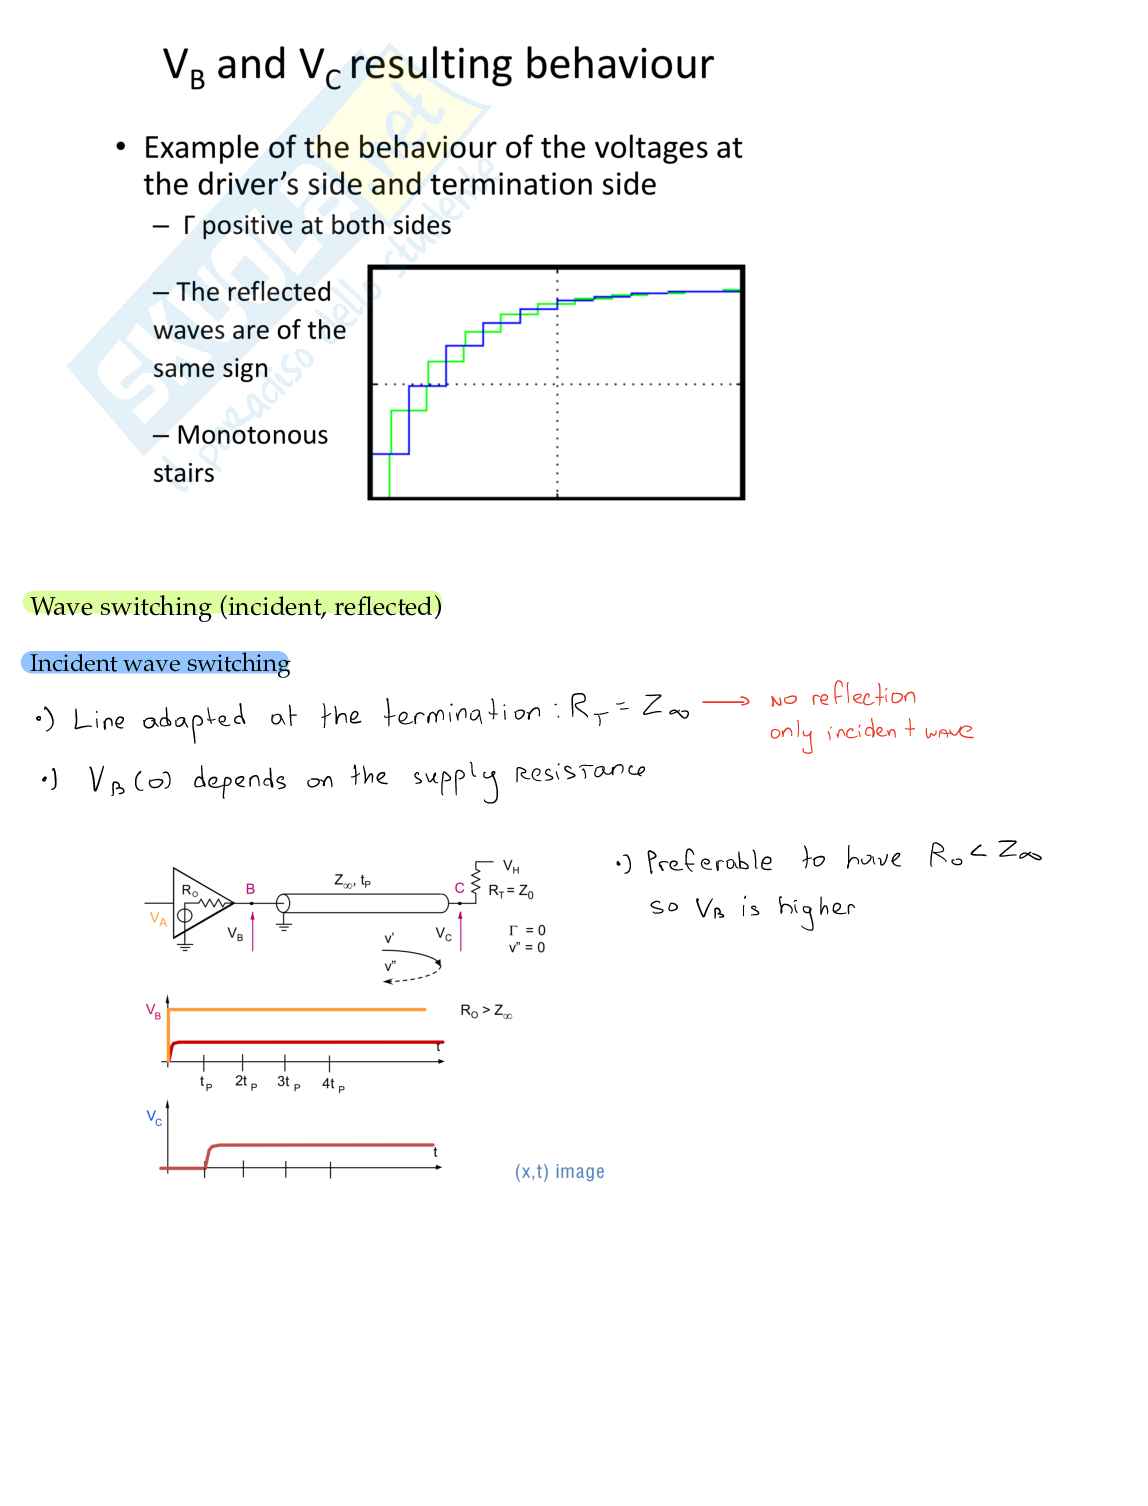 V_B and V_C resulting behaviour
• Example of the behaviour of the voltages at
the driver's side and termination side
– Γ positive at both sides
– The reflected
waves are of the
same sign
– Monotonous
stairs
SKUOLA.net
il paradiso dello studente
Wave switching (incident, reflected)
Incident wave switching
•) Line adapted at the termination: R_T = Z_∞ → No reflection
only incident wave
•) V_B(0) depends on the supply resistance
•) Preferable to have R_O < Z_∞
so V_B is higher
V_A
R_O
B
V_B
Z_∞, t_P
C
V_C
V_H
R_T = Z_0
Γ = 0
v" = 0
v'
v"
V_B
R_O > Z_∞
t
t_P 2t_P 3t_P 4t_P
V_C
t
(x,t) image